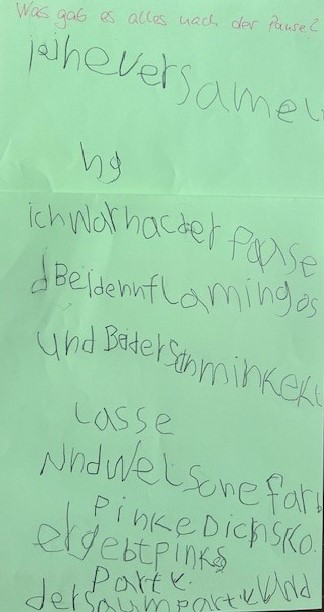 Was gab es alles nach der Pause?
eineversamel
ng
ichwarnachder Pause
dBeidennflamingos
und BeiderSchminkekl
Lasse
UndWelSonefarb
PinkeDickisko.
ergebtpinks
Party.
derSaumpartyUnd